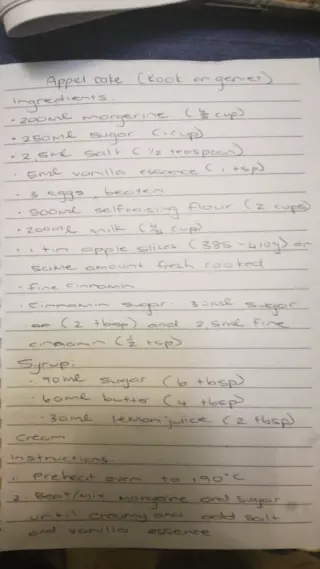 Appel cake (Kook en geniet)
Ingredients.
• 200ml margerine (⅘ cup)
• 250ml sugar (1 cup)
• 2,5ml salt (½ teaspoon)
• 5ml vanilla essence (1 tsp)
• 3 eggs, beaten
• 500ml selfraising flour (2 cups)
• 200ml milk (⅘ cup)
• 1 tin apple slices (385 - 410g) or
same amount fresh cooked
• fine cinnamon
• cinnamin sugar. 30ml sugar
(2 tbsp) and 2,5ml fine
cinnamon (½ tsp)
Syrup:
• 90ml sugar (6 tbsp)
• 60ml butter (4 tbsp)
• 30ml lemon juice (2 tbsp)
Cream
Instructions
1. Preheat oven to 190°C
2. Beat/mix margarine and sugar
until creamy and add salt
and vanilla essence